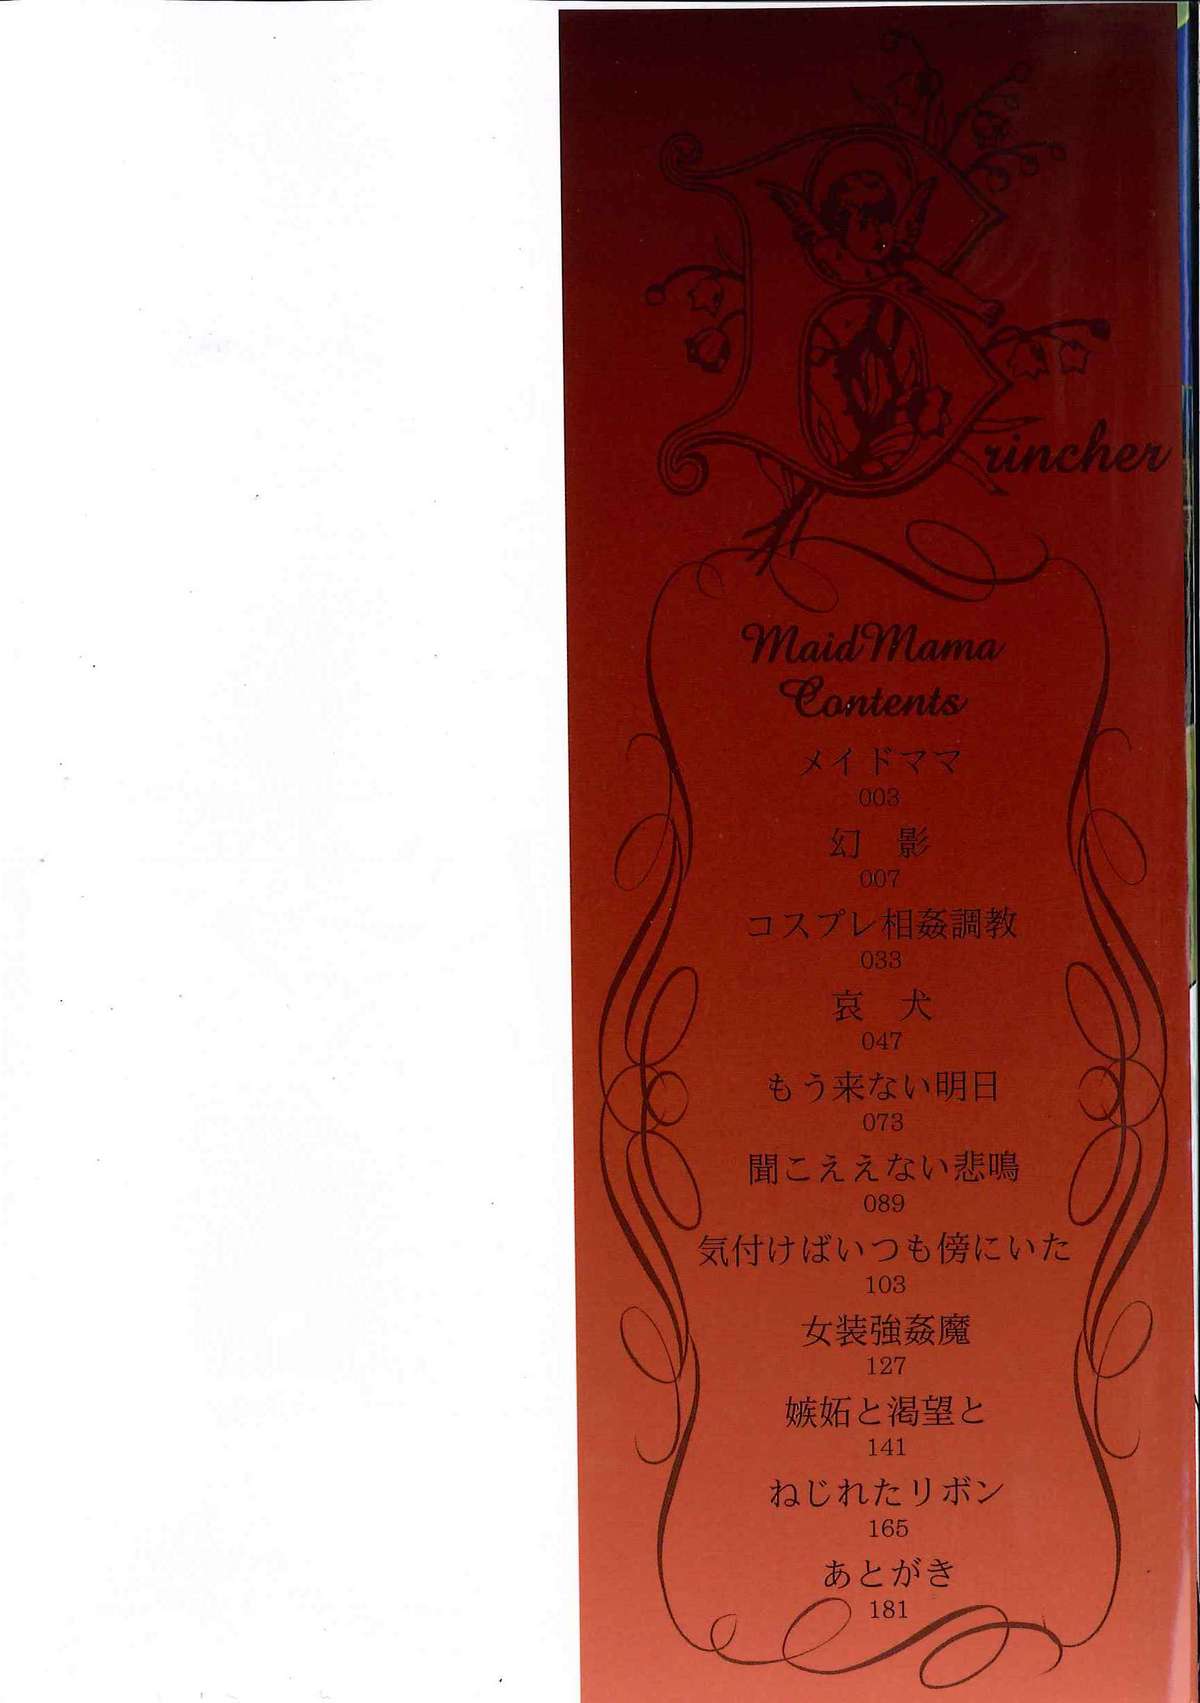 Brincher
Maid Mama
Contents
メイドママ
003
幻　影
007
コスプレ相姦調教
033
哀　犬
047
もう来ない明日
073
聞こええない悲鳴
089
気付けばいつも傍にいた
103
女装強姦魔
127
嫉妬と渇望と
141
ねじれたリボン
165
あとがき
181